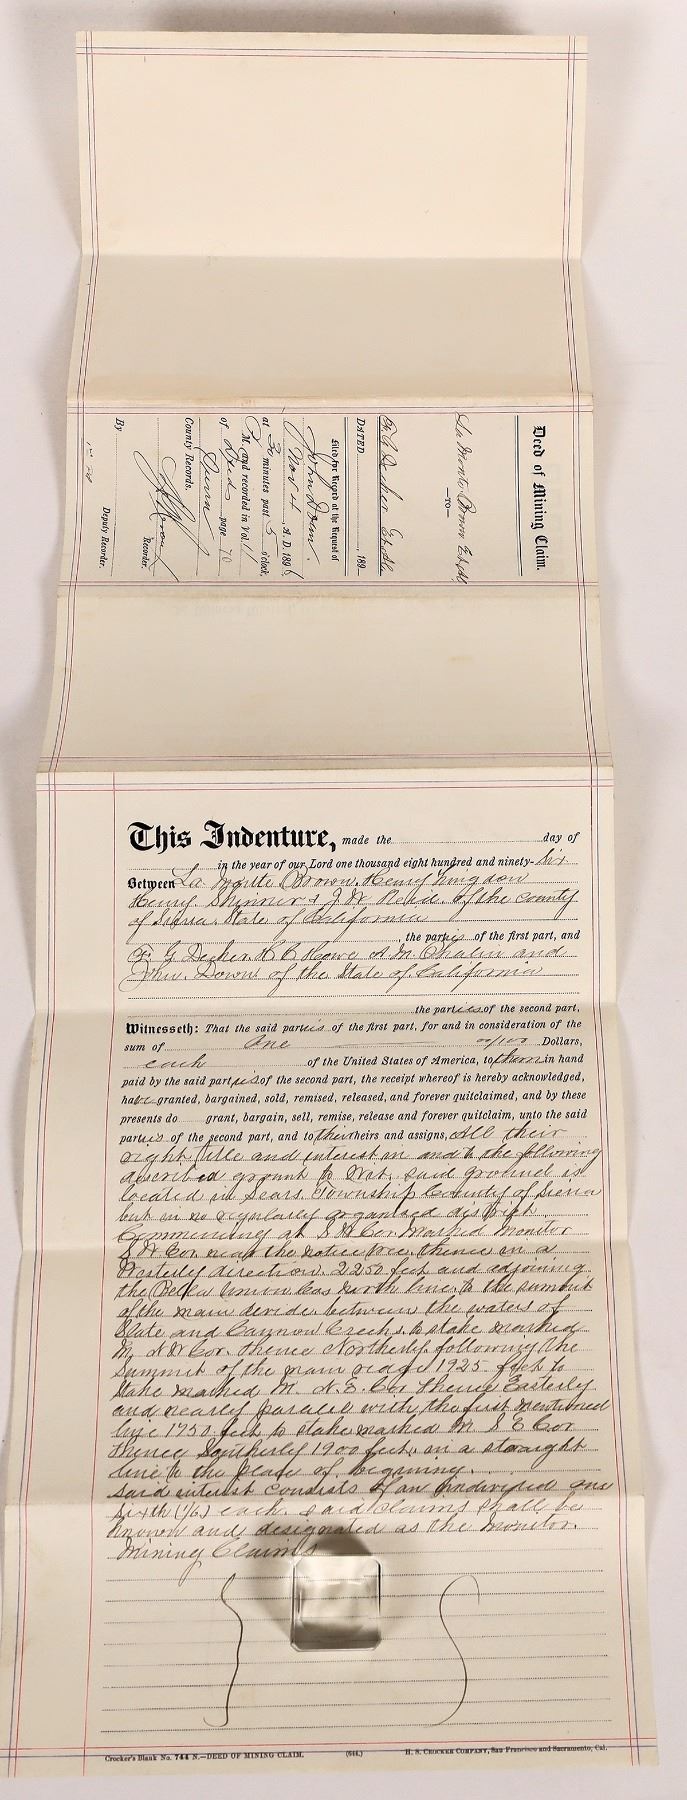 Deed of Mining Claim.
La Motte Brown Et Al
—TO—
Decker Et Als
DATED 189
Filed for Record at the Request of
John Down
Nov 4 A. D. 1896
at 30 minutes past 5 o'clock,
P M. and recorded in Vol. 11
of Deeds page 70
Sierra
County Records.
Recorder.
By
Deputy Recorder.
This Indenture, made the day of
in the year of our Lord one thousand eight hundred and ninety-six
Between La Motte Brown, Henry
Henry Skinner & J W of the County
of Sierra State of California
the parties of the first part, and
G Decker, H B Howe A M Phalin and
John Down of the State of California
the parties of the second part,
Witnesseth: That the said parties of the first part, for and in consideration of the
sum of One 00/100 Dollars,
each of the United States of America, to them in hand
paid by the said parties of the second part, the receipt whereof is hereby acknowledged,
have granted, bargained, sold, remised, released, and forever quitclaimed, and by these
presents do grant, bargain, sell, remise, release and forever quitclaim, unto the said
parties of the second part, and to their heirs and assigns, All their
right title and interest in and to the following
described ground to Wit, said ground is
located in Sears Township County of Sierra
but in no regularly organized district
Commencing at S W Cor. Marked Monitor
S W Cor. near the notice tree, thence in a
Westerly direction 2250 feet and adjoining
the Bella Union Cos north line, to the summit
of the main divide between the waters of
Slate and Cannon Creeks, to stake marked
M. N W Cor. thence Northerly following the
Summit of the main ridge 1925 feet to
stake marked M. N. E. Cor thence Easterly
and nearly parallel with the first mentioned
line 1750 feet to stake marked M S E Cor
thence Southerly 1900 feet, in a straight
line to the place of beginning.
Said interest consists of an undivided one
sixth (1/6) each. said claims shall be
known and designated as the Monitor
Mining Claims
Crocker's Blank No. 744 N.—DEED OF MINING CLAIM. (644.) H. S. CROCKER COMPANY, San Francisco and Sacramento, Cal.